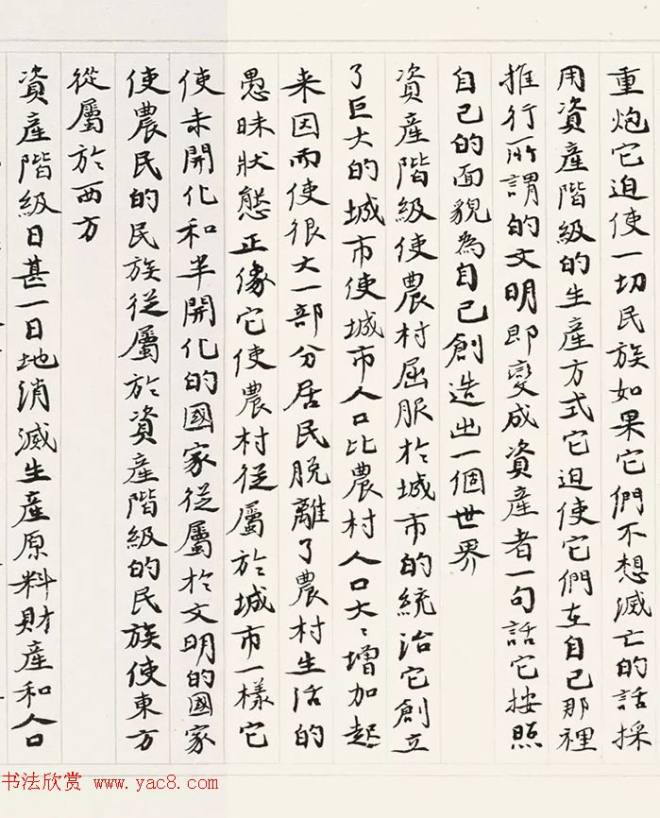 重炮它迫使一切民族如果它們不想滅亡的話採
用資産階級的生産方式它迫使它們在自己那裡
推行所謂的文明即變成資産者一句話它按照
自己的面貌為自己創造出一個世界
資産階級使農村屈服於城市的統治它創立
了巨大的城市使城市人口比農村人口大〻增加起
来因而使很大一部分居民脱離了農村生活的
愚昧狀態正像它使農村從屬於城市一樣它
使未開化和半開化的國家從屬於文明的國家
使農民的民族從屬於資産階級的民族使東方
從屬於西方
資産階級日甚一日地消滅生産原料財産和人口
书法欣赏 www.yac8.com